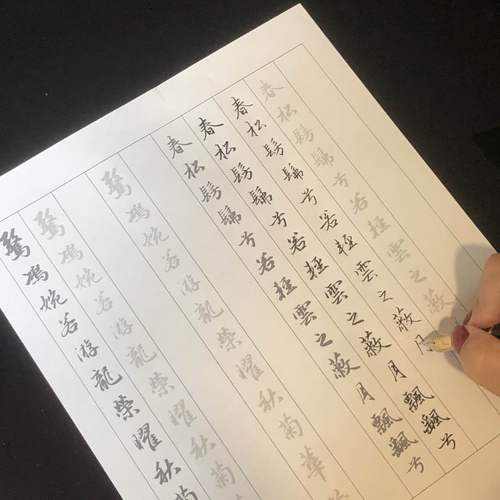 春松髣髴兮若輕雲之蔽
春松髣髴兮若輕雲之蔽月
春松髣髴兮若輕雲之蔽月飄飄兮
春松髣髴兮若輕雲之蔽月飄飄兮
驚鴻婉若游龍榮曜秋菊華
驚鴻婉若游龍榮曜秋菊
驚鴻婉若游龍榮曜秋菊